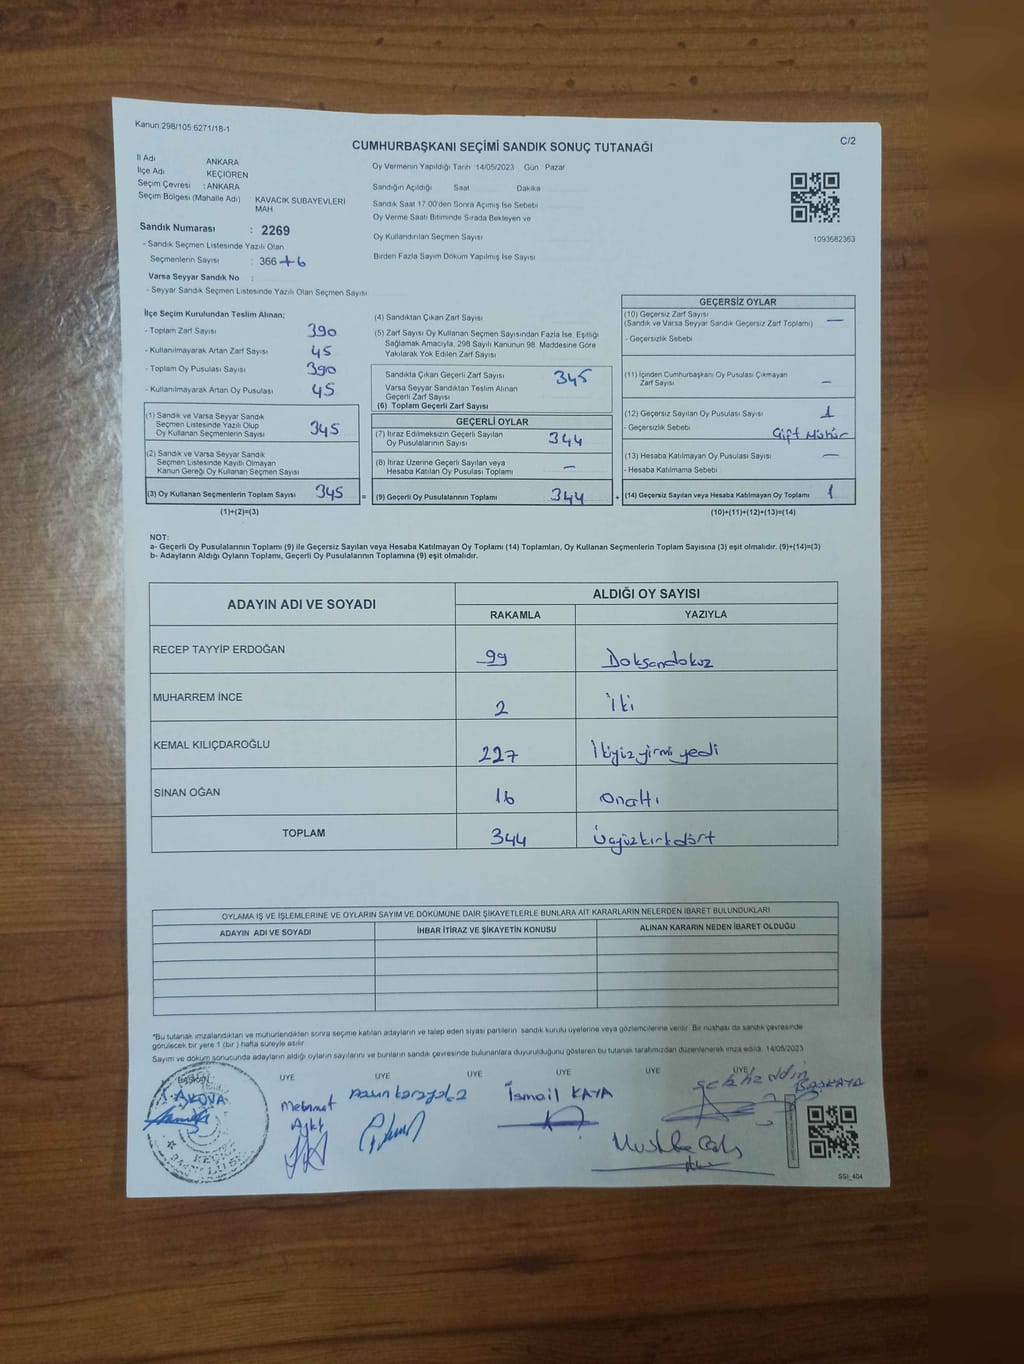 Kanun.298/105.6271/18-1
C/2
CUMHURBAŞKANI SEÇİMİ SANDIK SONUÇ TUTANAĞI
İl Adı ANKARA
İlçe Adı KEÇİÖREN
Seçim Çevresi : ANKARA
Seçim Bölgesi (Mahalle Adı) KAVACIK SUBAYEVLERİ MAH
Sandık Numarası : 2269
- Sandık Seçmen Listesinde Yazılı Olan
Seçmenlerin Sayısı : 366 +6
Varsa Seyyar Sandık No :
- Seyyar Sandık Seçmen Listesinde Yazılı Olan Seçmen Sayısı
Oy Vermenin Yapıldığı Tarih 14/05/2023 Gün Pazar
Sandığın Açıldığı Saat Dakika
Sandık Saat 17.00'den Sonra Açmış İse Sebebi
Oy Verme Saati Bitiminde Sırada Bekleyen ve
Oy Kullandırılan Seçmen Sayısı
Birden Fazla Sayım Döküm Yapılmış İse Sayısı
1093682363
İlçe Seçim Kurulundan Teslim Alınan;
- Toplam Zarf Sayısı 390
- Kullanılmayarak Artan Zarf Sayısı 45
- Toplam Oy Pusulası Sayısı 390
- Kullanılmayarak Artan Oy Pusulası 45
(1) Sandık ve Varsa Seyyar Sandık
Seçmen Listesinde Yazılı Olup
Oy Kullanan Seçmenlerin Sayısı 345
(2) Sandık ve Varsa Seyyar Sandık
Seçmen Listesinde Kayıtlı Olmayan
Kanun Gereği Oy Kullanan Seçmen Sayısı
(3) Oy Kullanan Seçmenlerin Toplam Sayısı 345
(1)+(2)=(3)
(4) Sandıktan Çıkan Zarf Sayısı
(5) Zarf Sayısı Oy Kullanan Seçmen Sayısından Fazla İse, Eşitliği
Sağlamak Amacıyla, 298 Sayılı Kanunun 98. Maddesine Göre
Yakılarak Yok Edilen Zarf Sayısı
Sandıkta Çıkan Geçerli Zarf Sayısı 345
Varsa Seyyar Sandıktan Teslim Alınan
Geçerli Zarf Sayısı
(6) Toplam Geçerli Zarf Sayısı
GEÇERLİ OYLAR
(7) İtiraz Edilmeksizin Geçerli Sayılan
Oy Pusulalarının Sayısı 344
(8) İtiraz Üzerine Geçerli Sayılan veya
Hesaba Katılan Oy Pusulası Toplamı –
= (9) Geçerli Oy Pusulalarının Toplamı 344
GEÇERSİZ OYLAR
(10) Geçersiz Zarf Sayısı
(Sandık ve Varsa Seyyar Sandık Geçersiz Zarf Toplamı) –
- Geçersizlik Sebebi
(11) İçinden Cumhurbaşkanı Oy Pusulası Çıkmayan
Zarf Sayısı –
(12) Geçersiz Sayılan Oy Pusulası Sayısı 1
- Geçersizlik Sebebi Çift Mühür
(13) Hesaba Katılmayan Oy Pusulası Sayısı –
- Hesaba Katılmama Sebebi
+ (14) Geçersiz Sayılan veya Hesaba Katılmayan Oy Toplamı 1
(10)+(11)+(12)+(13)=(14)
NOT:
a- Geçerli Oy Pusulalarının Toplamı (9) ile Geçersiz Sayılan veya Hesaba Katılmayan Oy Toplamı (14) Toplamları, Oy Kullanan Seçmenlerin Toplam Sayısına (3) eşit olmalıdır. (9)+(14)=(3)
b- Adayların Aldığı Oyların Toplamı, Geçerli Oy Pusulalarının Toplamına (9) eşit olmalıdır.
ADAYIN ADI VE SOYADI ALDIĞI OY SAYISI
RAKAMLA YAZIYLA
RECEP TAYYİP ERDOĞAN 99 Doksandokuz
MUHARREM İNCE 2 İki
KEMAL KILIÇDAROĞLU 227 İkiyüzyirmi yedi
SİNAN OĞAN 16 onaltı
TOPLAM 344 Üçyüzkırkdört
OYLAMA İŞ VE İŞLEMLERİNE VE OYLARIN SAYIM VE DÖKÜMÜNE DAİR ŞİKAYETLERLE BUNLARA AİT KARARLARIN NELERDEN İBARET BULUNDUKLARI
ADAYIN ADI VE SOYADI İHBAR İTİRAZ VE ŞİKAYETİN KONUSU ALINAN KARARIN NEDEN İBARET OLDUĞU
*Bu tutanak imzalandıktan ve mühürlendikten sonra seçime katılan adayların ve talep eden siyasi partilerin sandık kurulu üyelerine veya gözlemcilerine verilir. Bir nüshası da sandık çevresinde
görülecek bir yere 1 (bir) hafta süreyle asılır.
Sayım ve döküm sonucunda adayların aldığı oyların sayılarını ve bunların sandık çevresinde bulunanlara duyurulduğunu gösteren bu tutanak tarafımızdan düzenlenerek imza edildi. 14/05/2023
ÜYE ÜYE ÜYE ÜYE ÜYE
AKOVA
Mehmet
İsmail KAYA
BAŞKAYA
SSİ_404